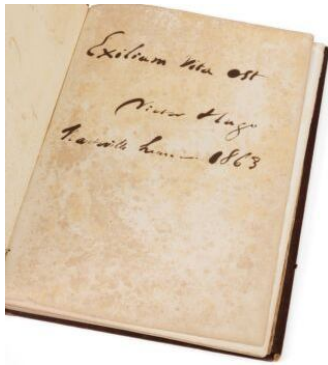 Exilium Vita est
Victor Hugo
Hauteville house 1863